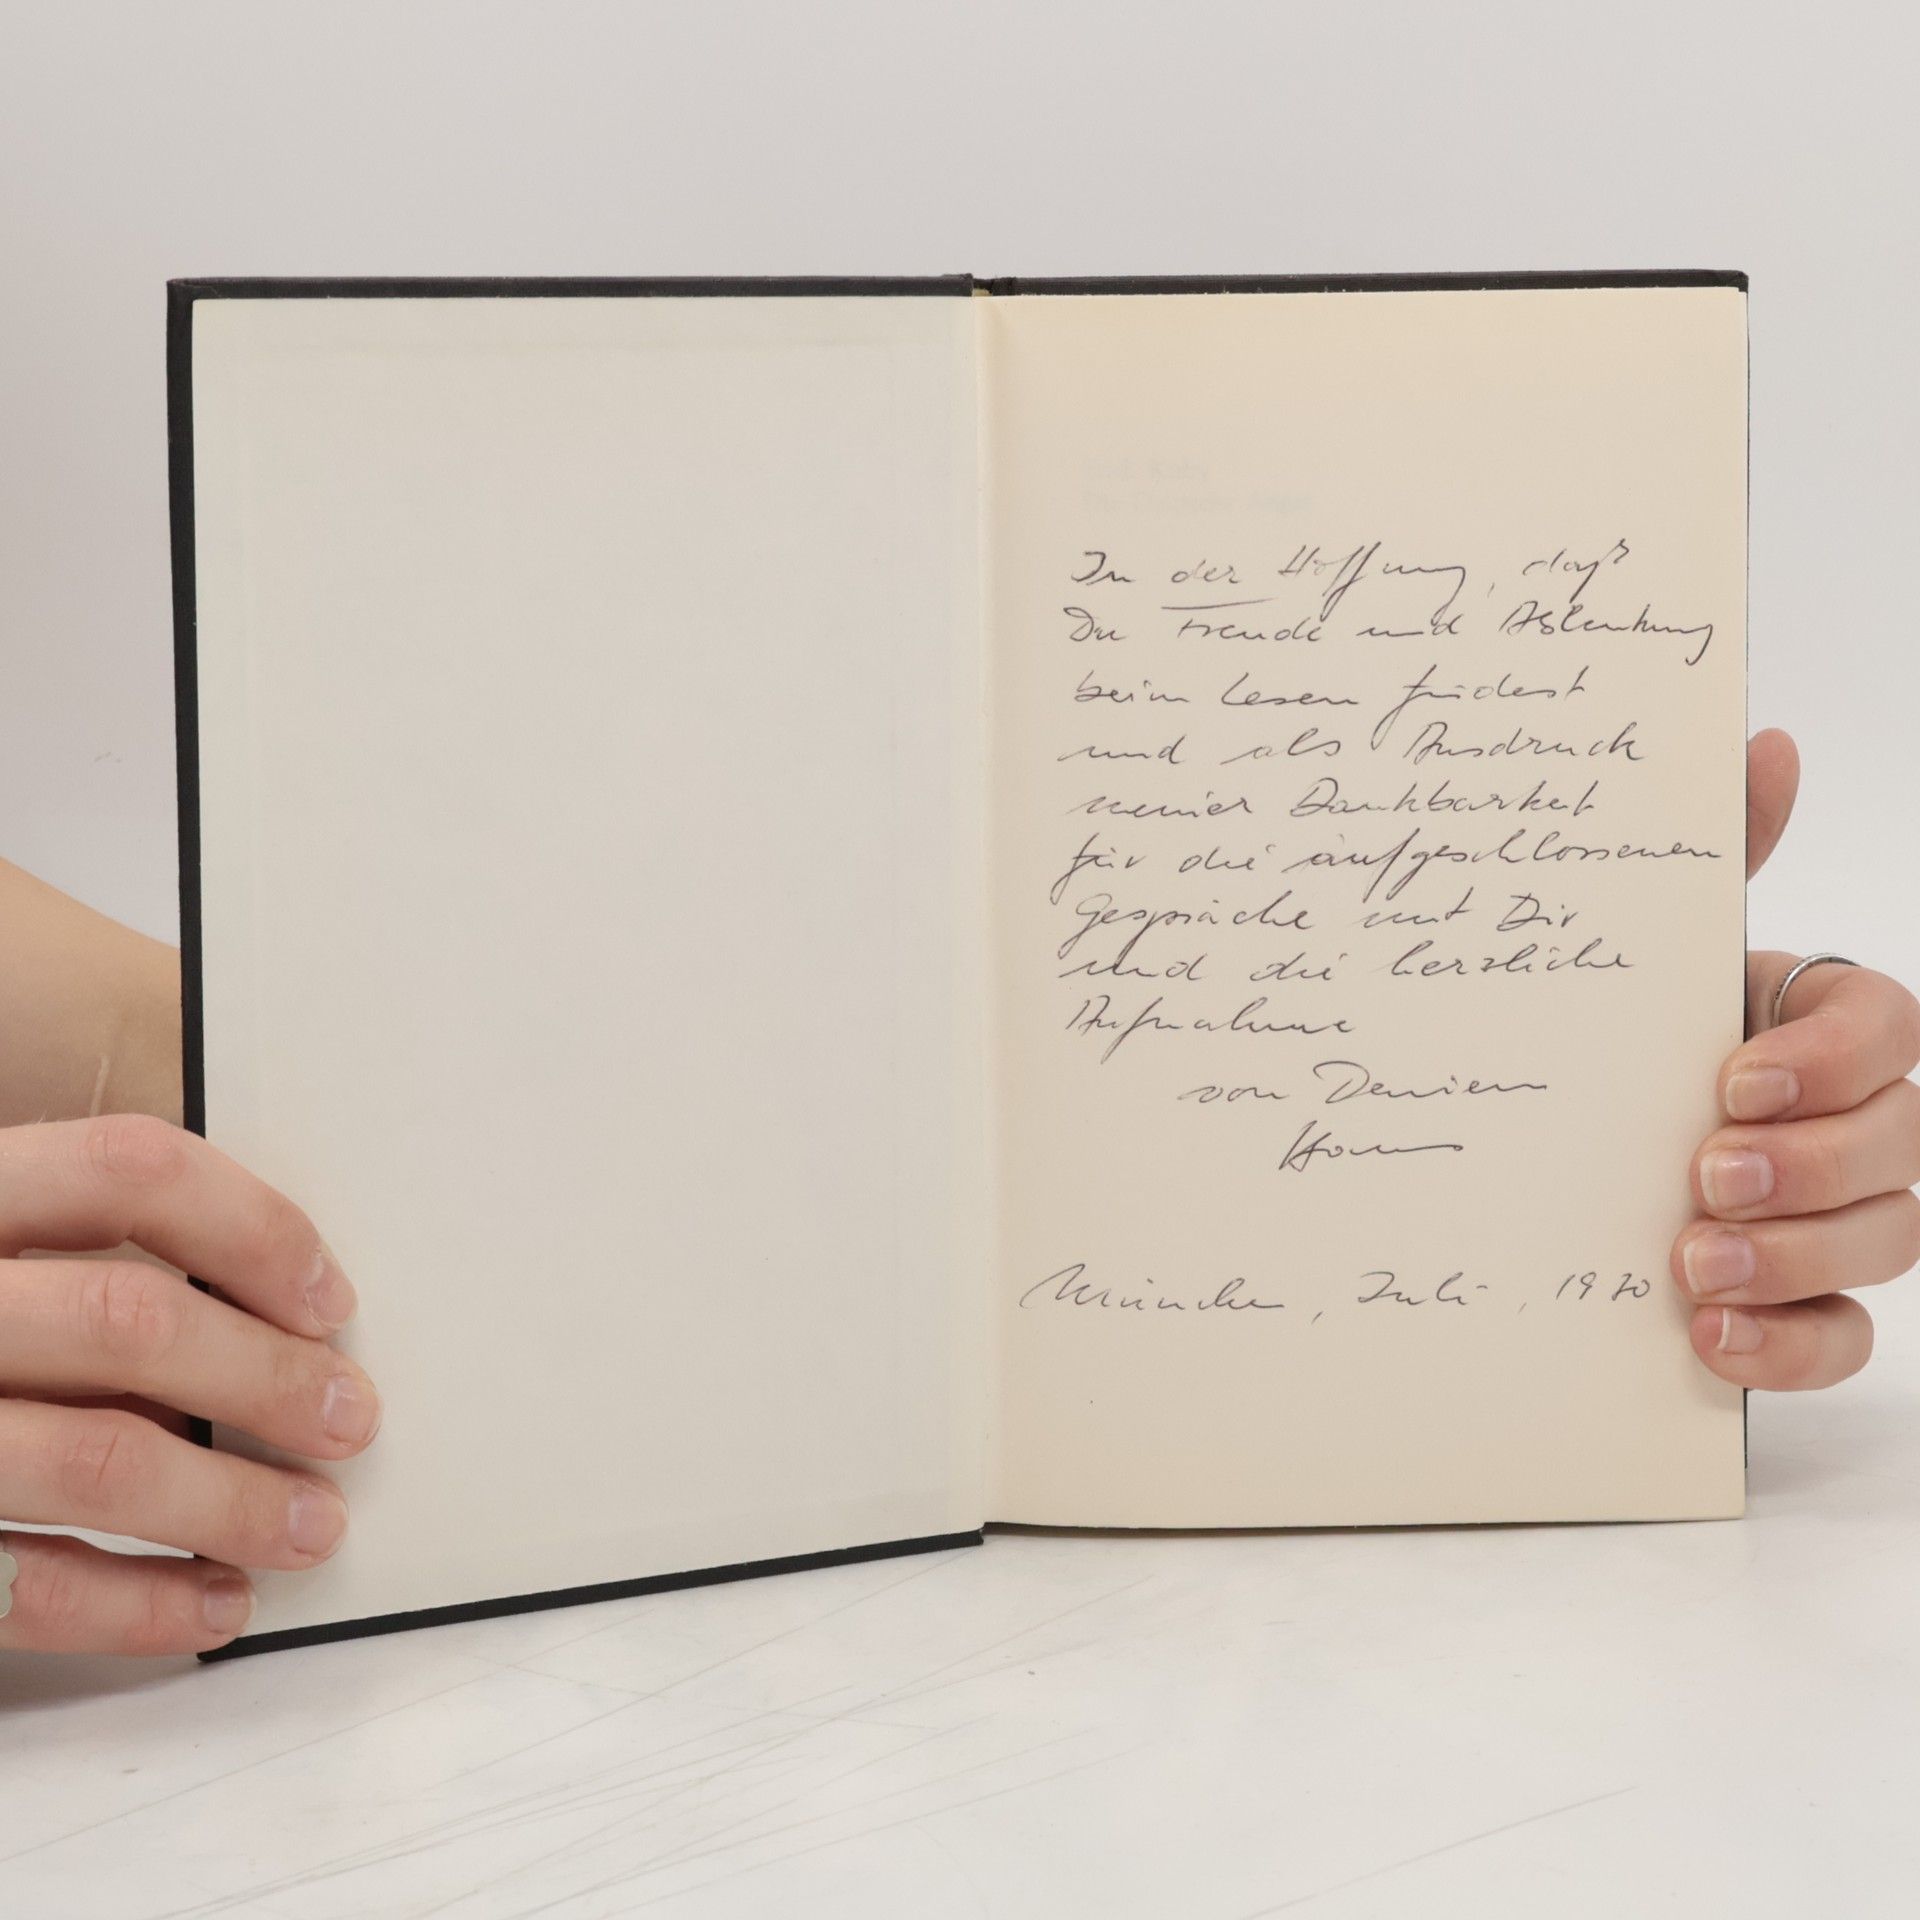 In der Hoffnung, daß
Du Freude und Ablenkung
beim Lesen findest
und als Ausdruck
meiner Dankbarkeit
für die aufgeschlossenen
Gespräche mit Dir
und die herzliche
Aufnahme
von Deinem
Hans
München, Juli, 19